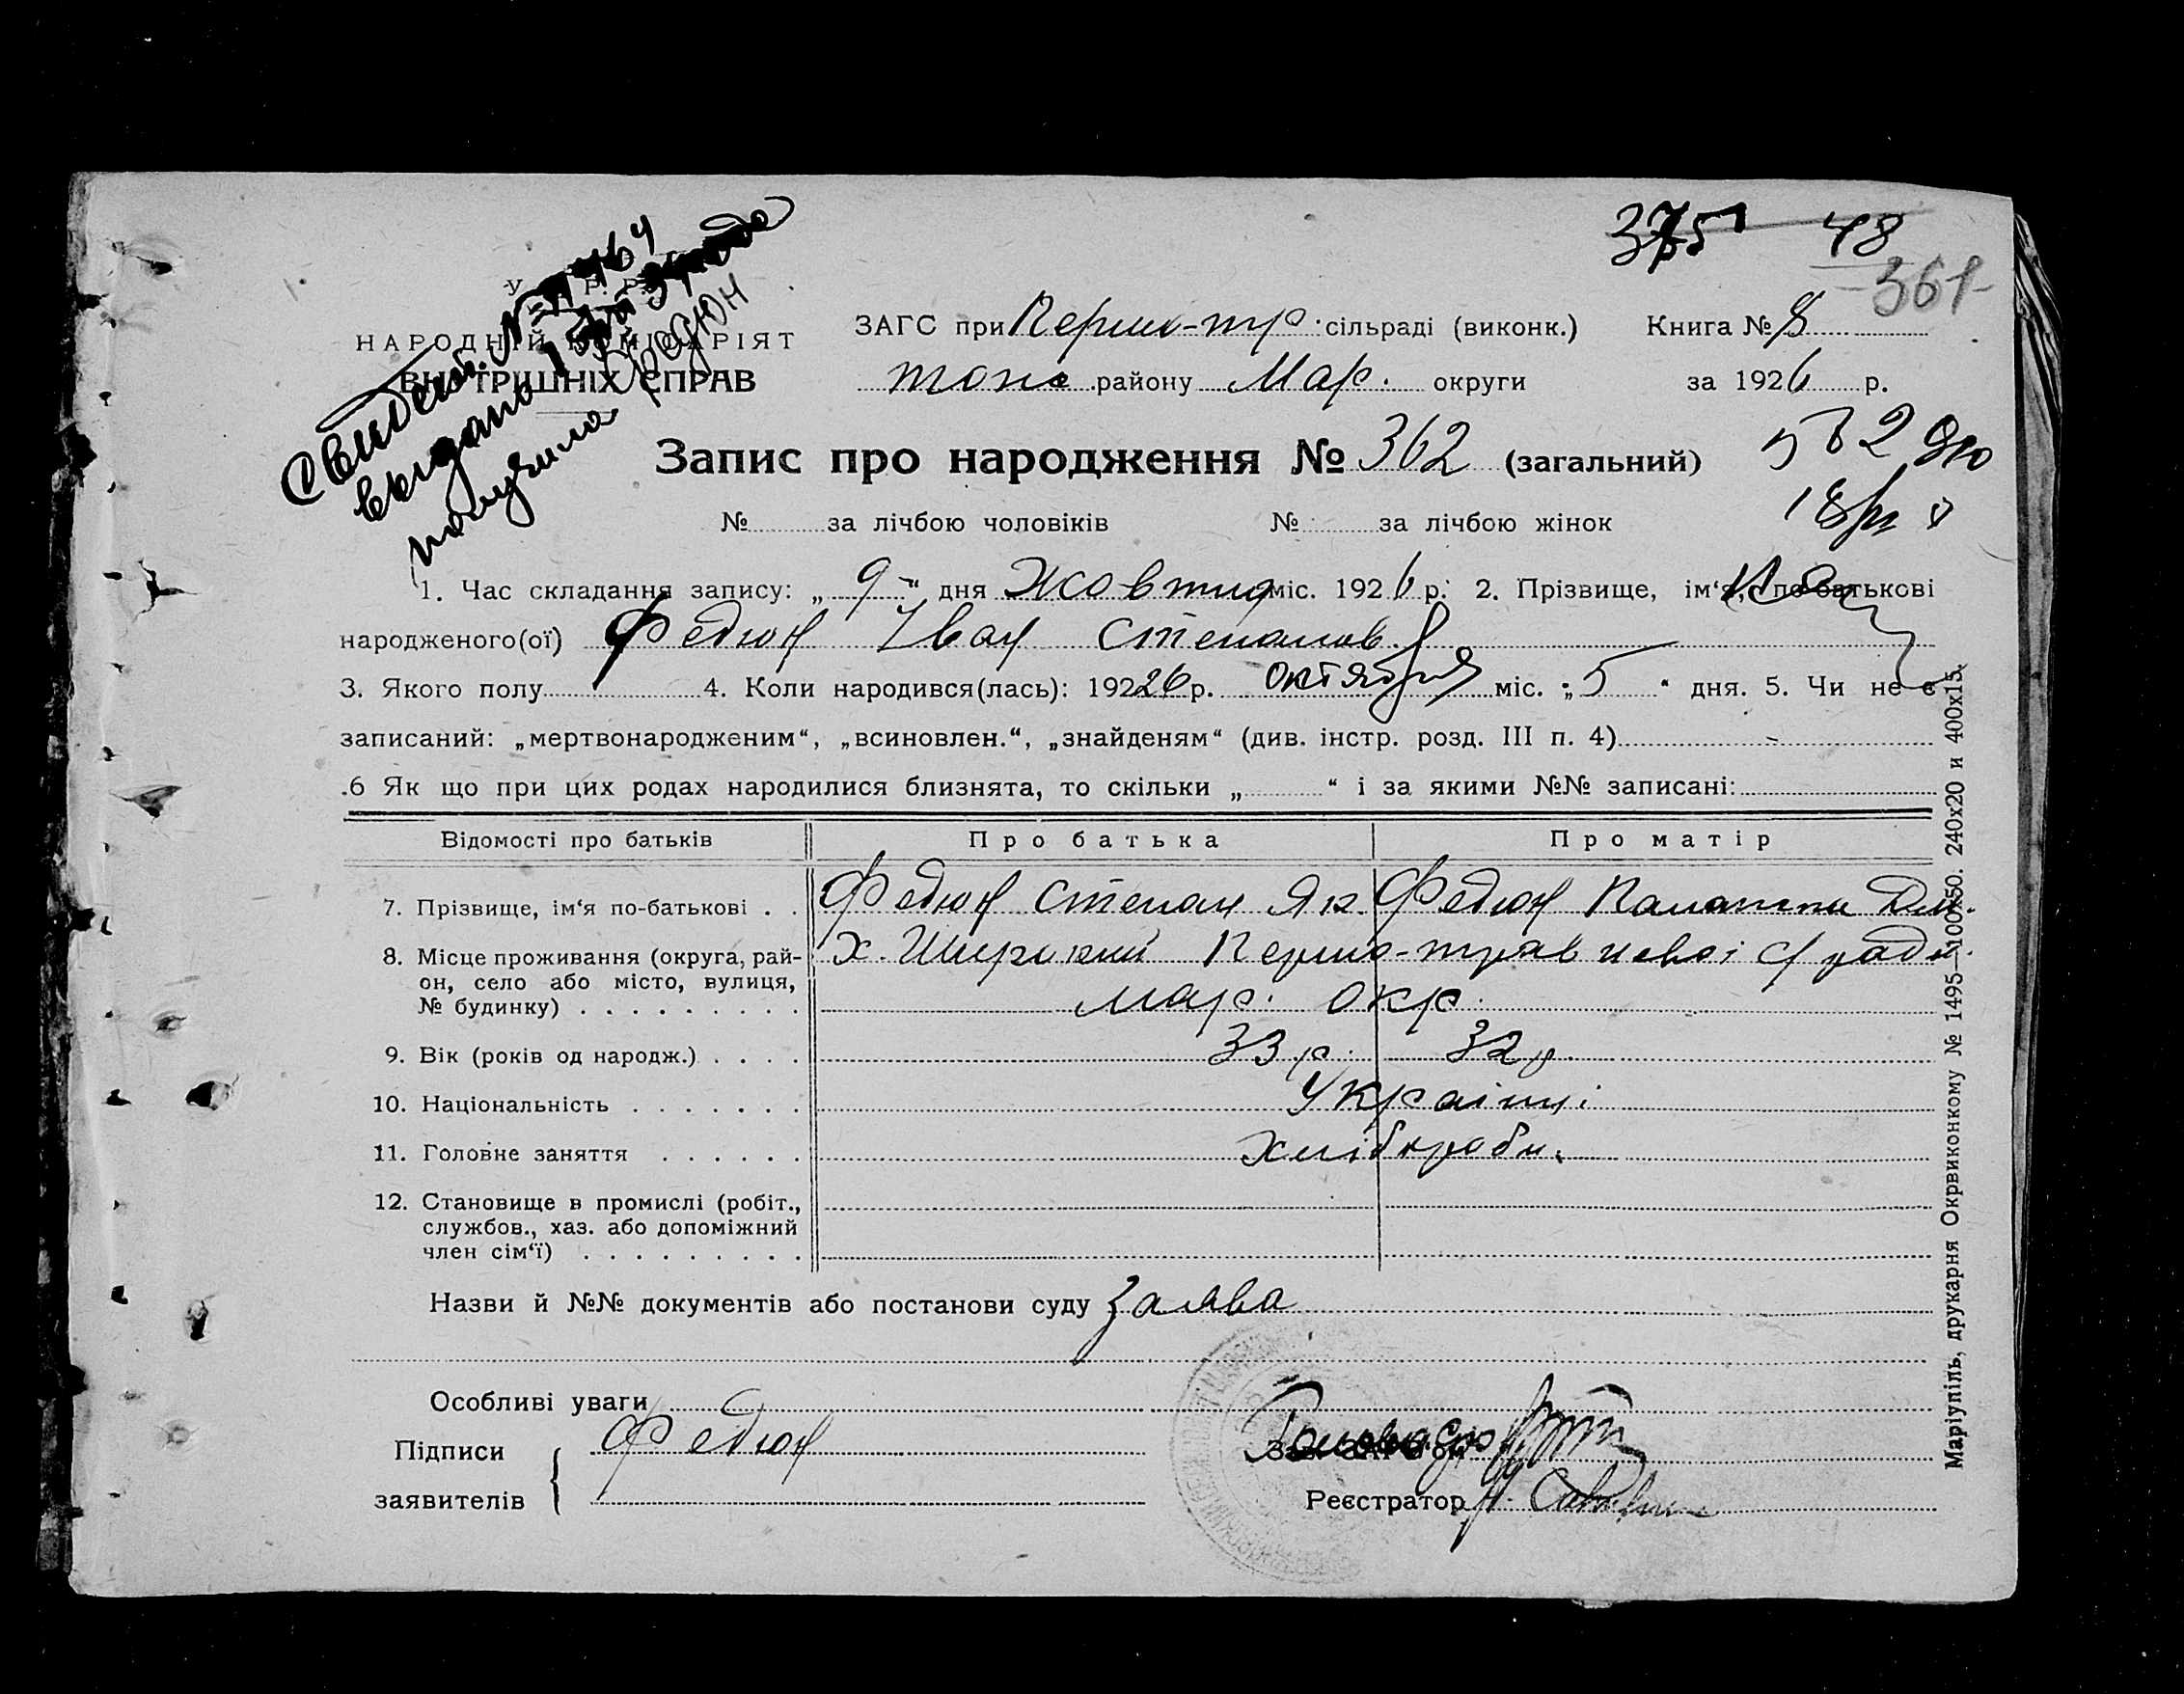 375 48
361
Свидет. №
выдано
получила Федюн
У. Р. Р.
НАРОДНІЙ КОМІСАРІЯТ
ВНУТРІШНІХ СПРАВ
ЗАГС при Першо-тр. сільраді (виконк.) Книга № 8
району Мар. округи за 1926 р.
Запис про народження № 362 (загальний)
№ за лічбою чоловіків № за лічбою жінок
1. Час складання запису: „ 9 “ дня Жовтня міс. 1926 р. 2. Прізвище, ім‘я, по-батькові
народженого(ої) Федюн Іван Степанов.
3. Якого полу 4. Коли народився(лась): 192 26 р. октября міс. „ 5 “ дня. 5. Чи не є
записаний: „мертвонародженим“, „всиновлен.“, „знайденям“ (див. інстр. розд. III п. 4) -
.6 Як що при цих родах народилися близнята, то скільки „ “ і за якими №№ записані:
Відомості про батьків Про батька Про матір
7. Прізвище, ім‘я по-батькові . . Федюн Степан Як. Федюн Дм.
8. Місце проживання (округа, рай- х. Широкий Першо-травневоі с/ ради
он, село або місто, вулиця,
№ будинку) . . . . . . . . . Мар. окр.
9. Вік (років од народж.) . . . . 33 р. 32 р.
10. Національність . . . . . . . Украінці
11. Головне заняття . . . . . . Хлібороби.
12. Становище в промислі (робіт.,
службов., хаз. або допоміжний
член сім‘ї) . . . . . . . . .
Назви й №№ документів або постанови суду Заява
Особливі уваги
Підписи Федюн
заявителів
Голова с/р
Реєстратор
Маріупіль, друкарня Окрвиконкому № 1495—100х50. 240х20 и 400х15.